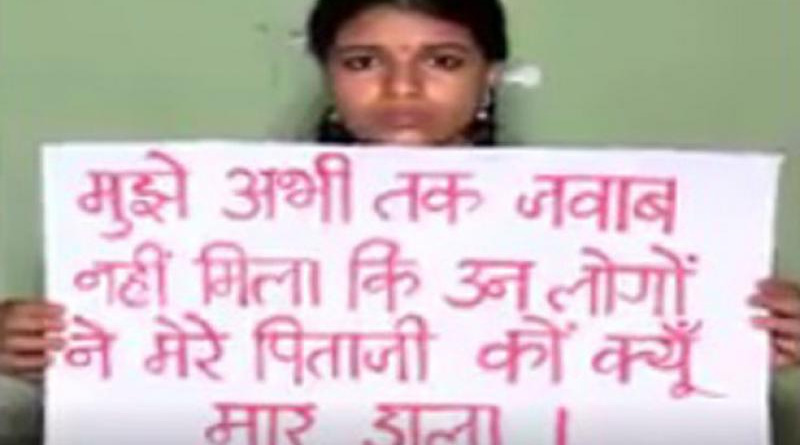 मुझे अभी तक जवाब
नहीं मिला कि उन लोगों
ने मेरे पिताजी कों क्यूँ
मार डाला।